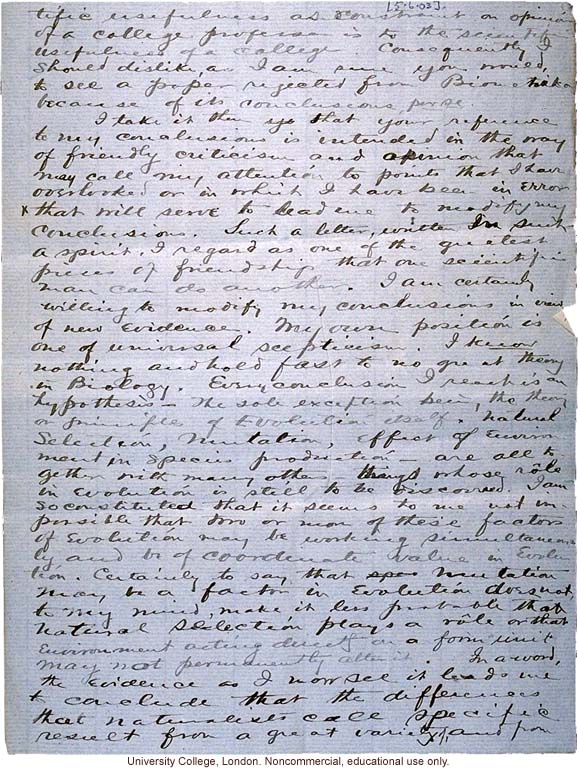 [5.6.03].
tific usefulness as constraint on opinion
of a college professor is to the scientific
usefulness of a college. Consequently I
should dislike, as I am sure you would,
to see a paper rejected from Biometrika
because of its conclusions per se.
I take it then that your reference
to my conclusions is intended in the way
of friendly criticism and opinion that
may call my attention to points that I have
overlooked or in which I have been in error
x that will serve to lead me to modify my
conclusions. Such a letter, written in such
a spirit, I regard as one of the greatest
pieces of friendship that one scientific
man can do another. I am certainly
willing to modify my conclusions in view
of new evidence. My own position is
one of universal scepticism. I know
nothing and hold fast to no great theory
in Biology. Every conclusion I reach is an
hypothesis — the sole exception being the theory
or principle of Evolution itself. Natural
Selection, Mutation, Effect of Environ
ment in species production — are all to
gether with many other things whose rôle
in evolution is still to be discovered. I am
so constituted that it seems to me not im
possible that two or more of these factors
of Evolution may be working simultaneous
ly and be of coordinate value in Evolu
tion. Certainly to say that mutation
may be a factor in Evolution does not,
to my mind, make it less probable that
natural selection plays a rôle or that
Environment acting directly on a form unit
may not permanently alter it. In a word,
the evidence as I now see it leads me
to conclude that the differences
that naturalists call specific
result from a great variety, and from
University College, London. Noncommercial, educational use only.